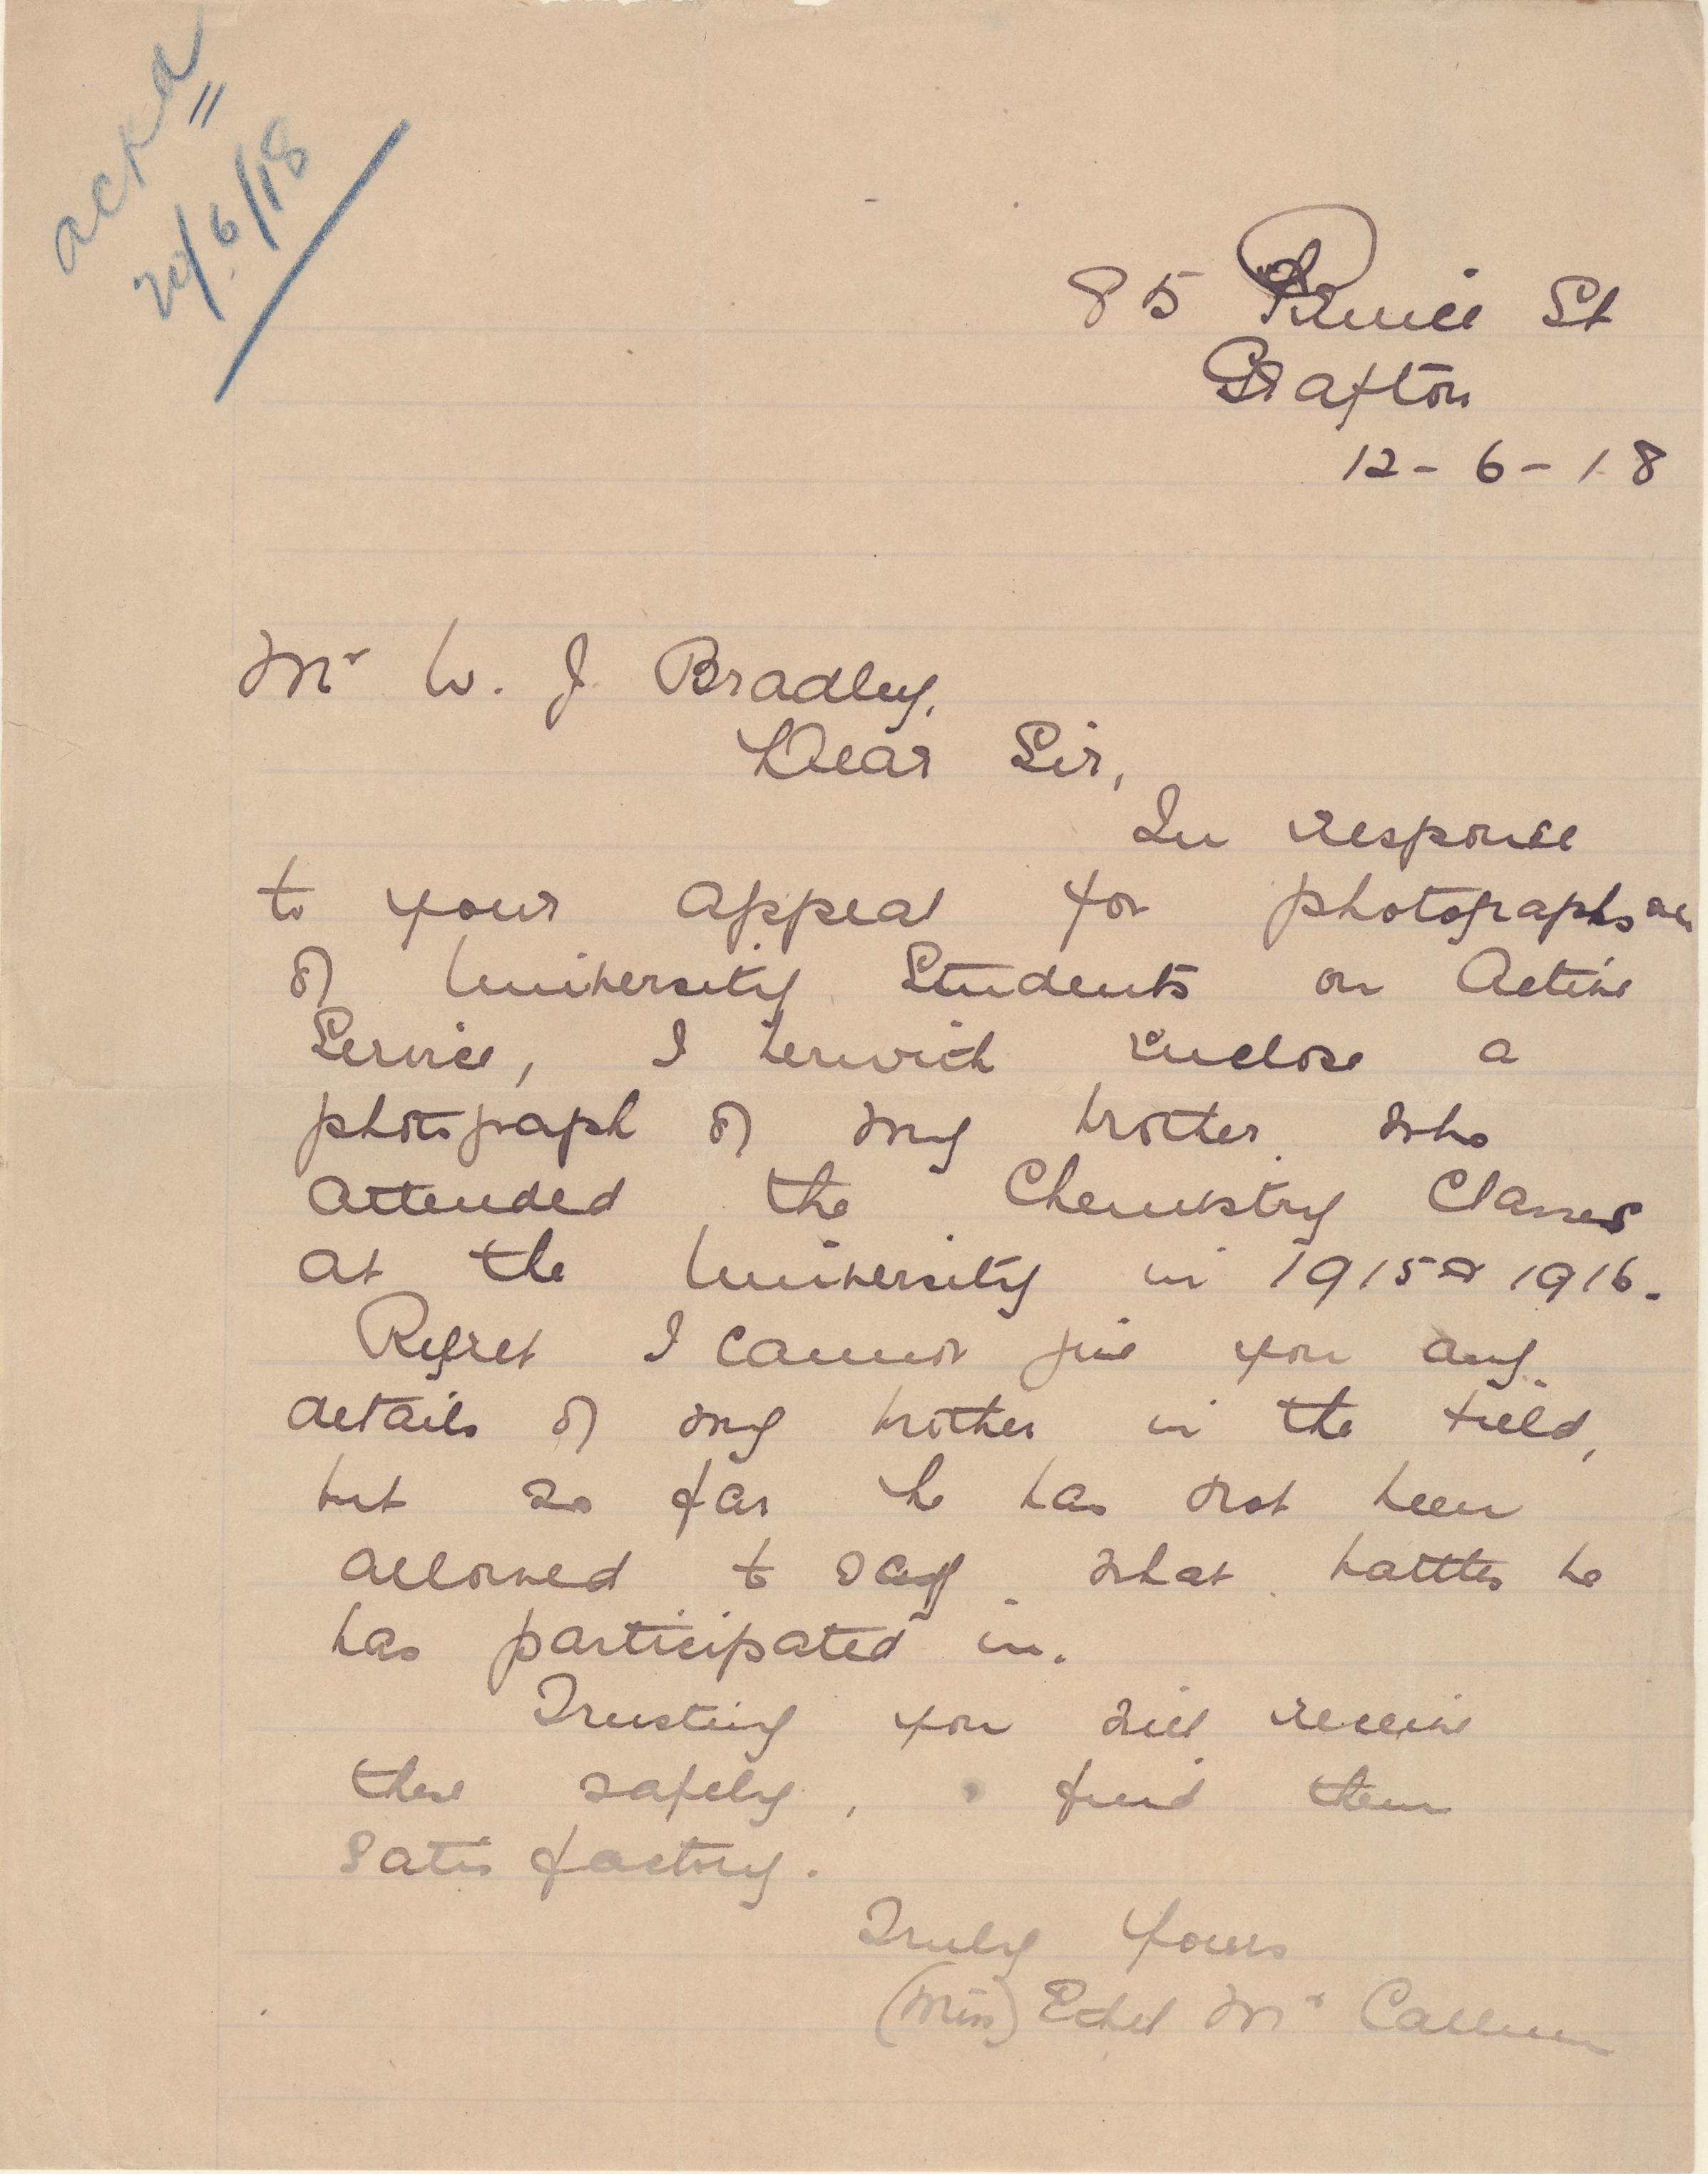 ackd
20/6/18
85 Prince St
Grafton
12-6-18
Mr W. J. Bradley,
Dear Sir,
In response
to your appeal for photographs etc
of University Students on Active
Service, I herwith enclose a
photograph of my brother who
attended the Chemistry Classes
at the University in 1915 & 1916.
Regret I cannot give you any
details of my brother in the field,
but so far he has not been
allowed to say what battles he
has participated in.
Trusting you will receive
these safely, & find them
satisfactory.
Truly Yours
(Miss) Ethel Mc Callum